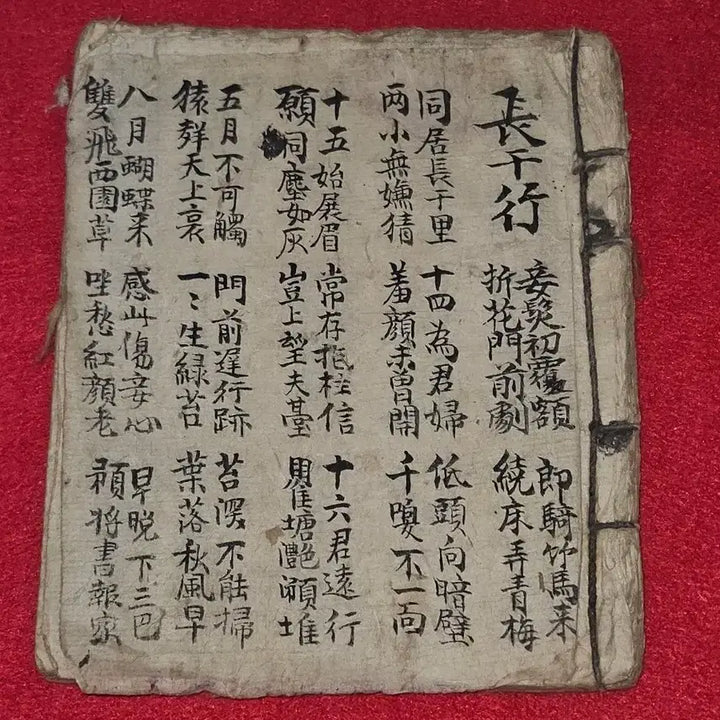 長干行
妾髮初覆額
折花門前劇
郎騎竹馬来
繞床弄青梅
同居長干里
两小無嫌猜
十四為君婦
羞顏未曾開
低頭向暗壁
千喚不一回
十五始展眉
願同塵如灰
常存抱柱信
豈上望夫臺
十六君遠行
瞿塘灔澦堆
五月不可觸
猿群天上哀
門前遲行跡
一〻生緑苔
苔深不能掃
葉落秋風早
八月蝴蝶来
雙飛西園草
感此傷妾心
坐愁紅顏老
早晚下三巴
預將書報家